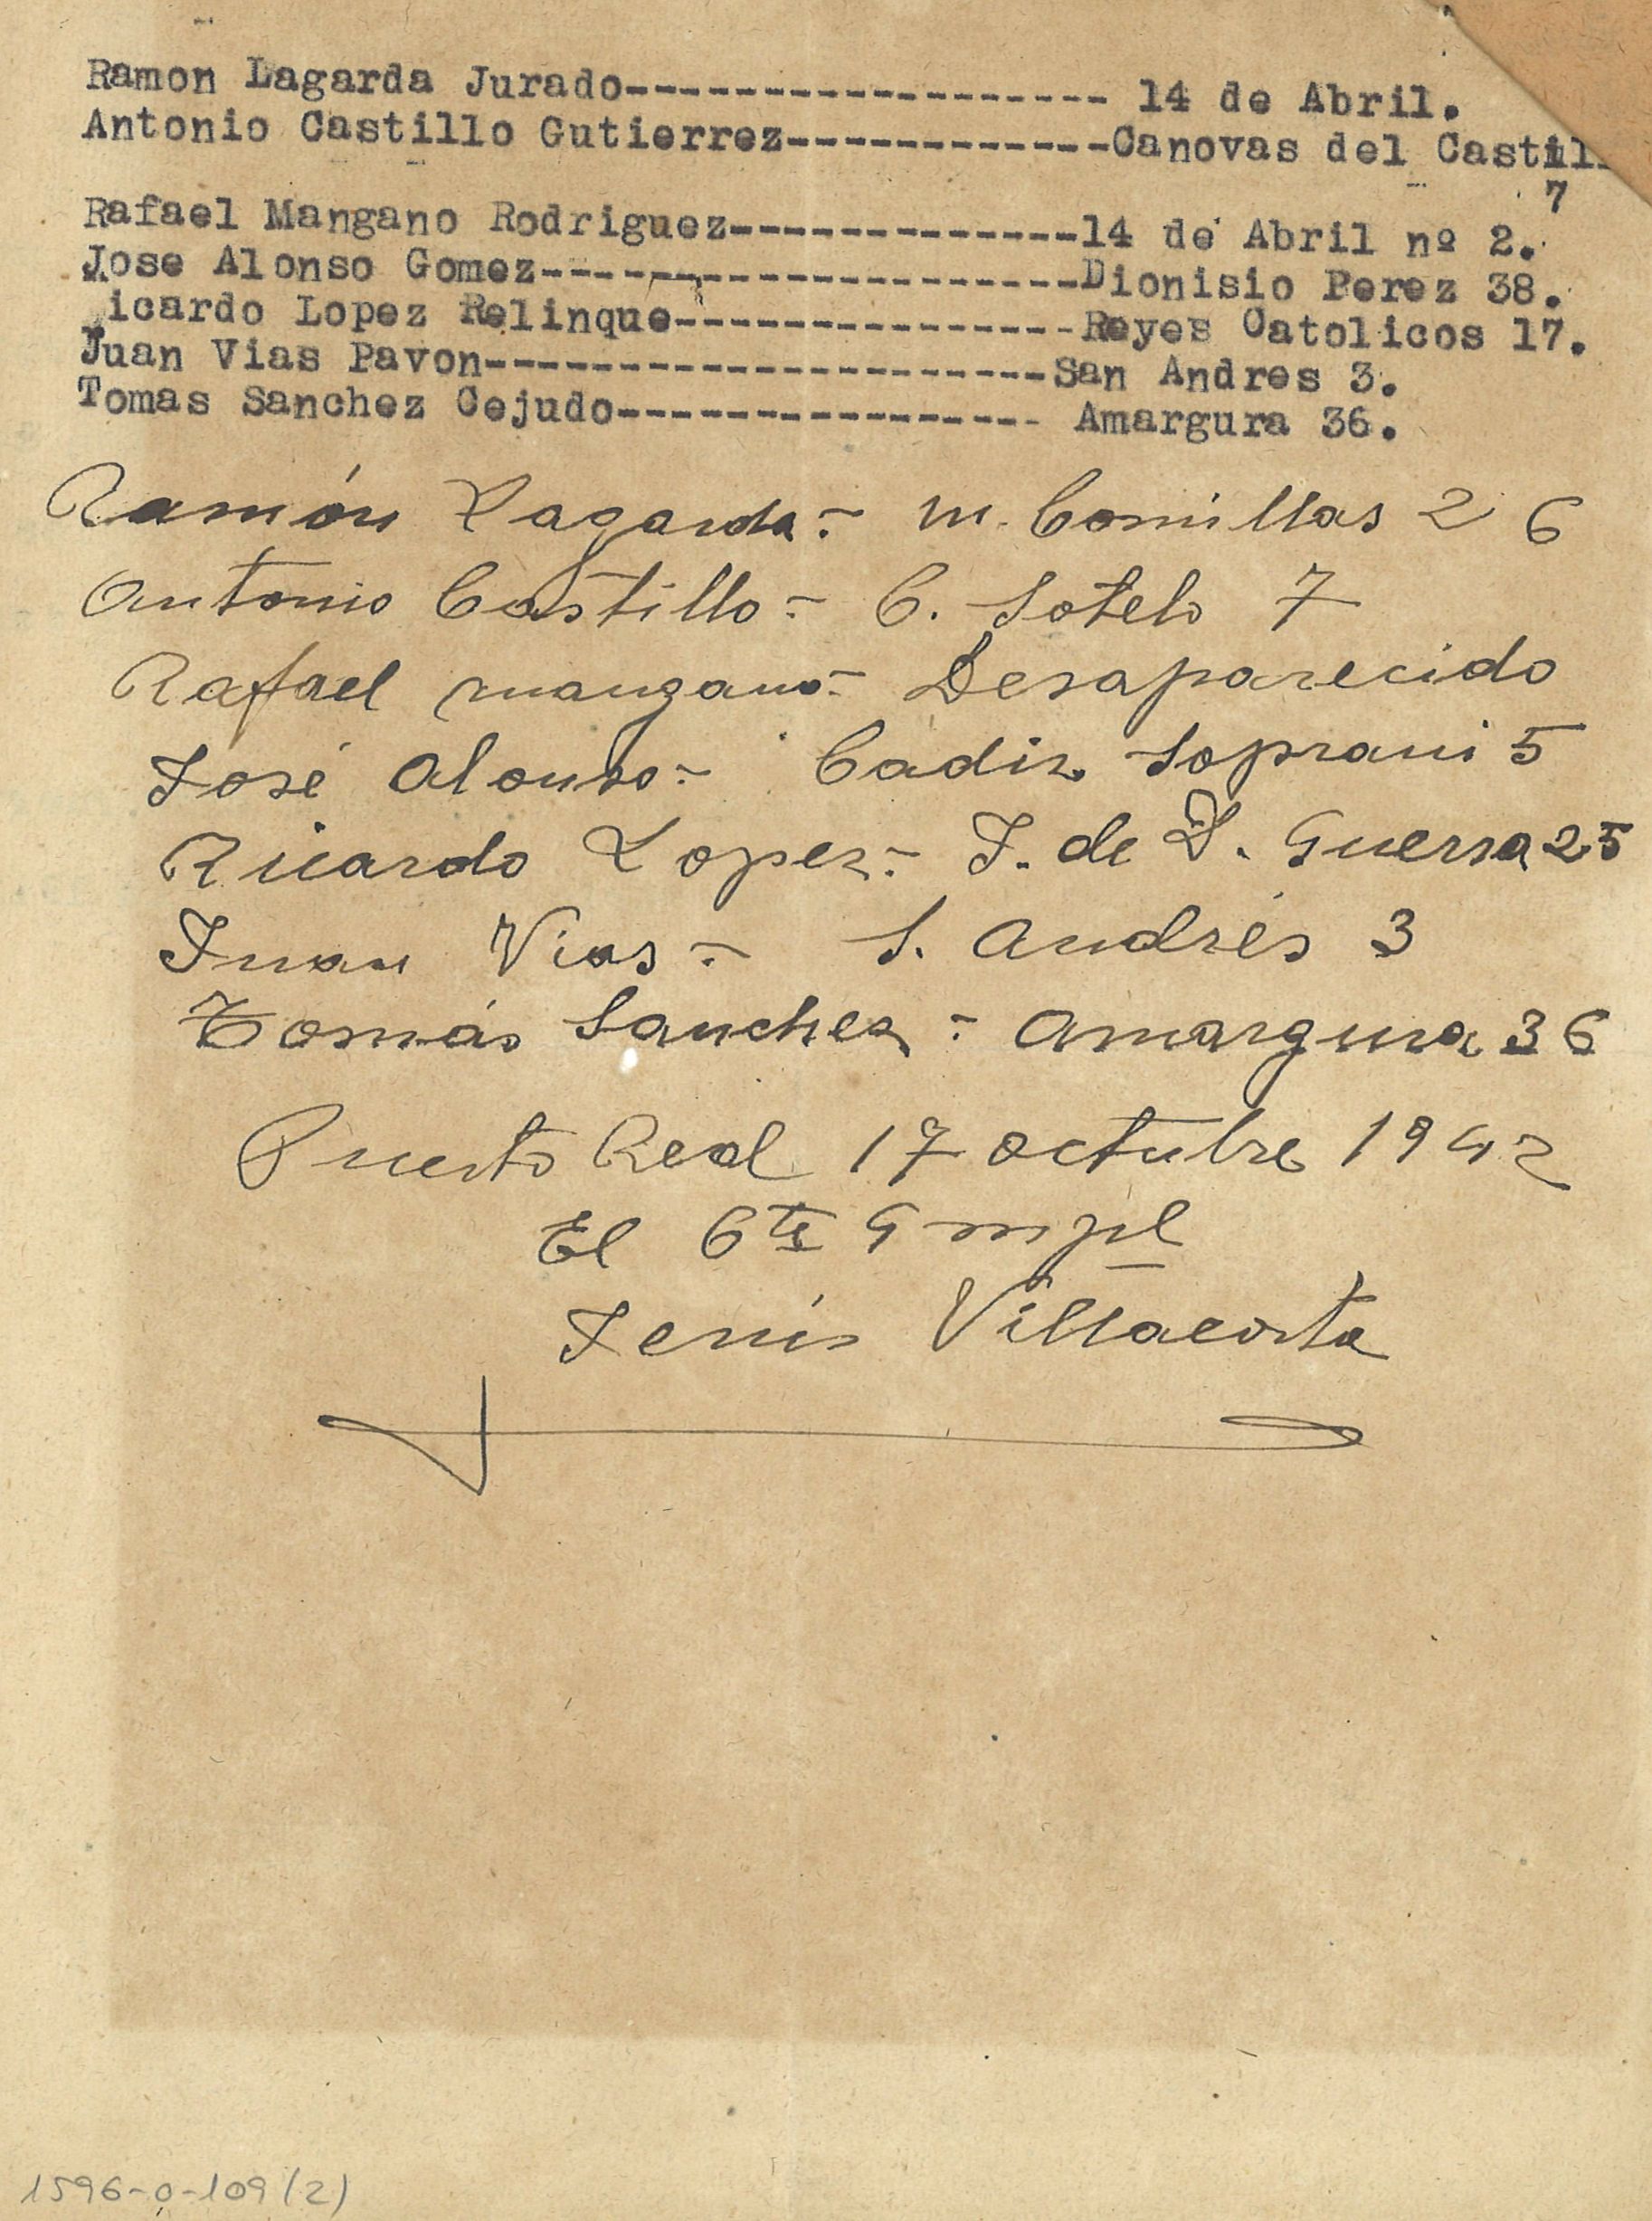 Ramon Lagarda Jurado------------------ 14 de Abril.
Antonio Castillo Gutierrez------------Canovas del Castill
7
Rafael Mangano Rodriguez-------------14 de Abril nº 2.
Jose Alonso Gomez--------------------Dionisio Perez 38.
icardo Lopez Relinque---------------Reyes Catolicos 17.
Juan Vias Pavon---------------------San Andres 3.
Tomas Sanchez Cejudo---------------- Amargura 36.
Ramón Lagarda - M. Comillas 26
Antonio Castillo - C. Sotelo 7
Rafael Mangano - Desaparecido
José Alonso - Cadiz Soprani 5
Ricardo Lopez - J. de D. Guerra 25
Juan Vias - S. Andrés 3
Tomás Sanchez - Amargura 36
Puerto Real 17 octubre 1942
El Cte G mpl
Jesús Villacorta
1596-0-109(2)